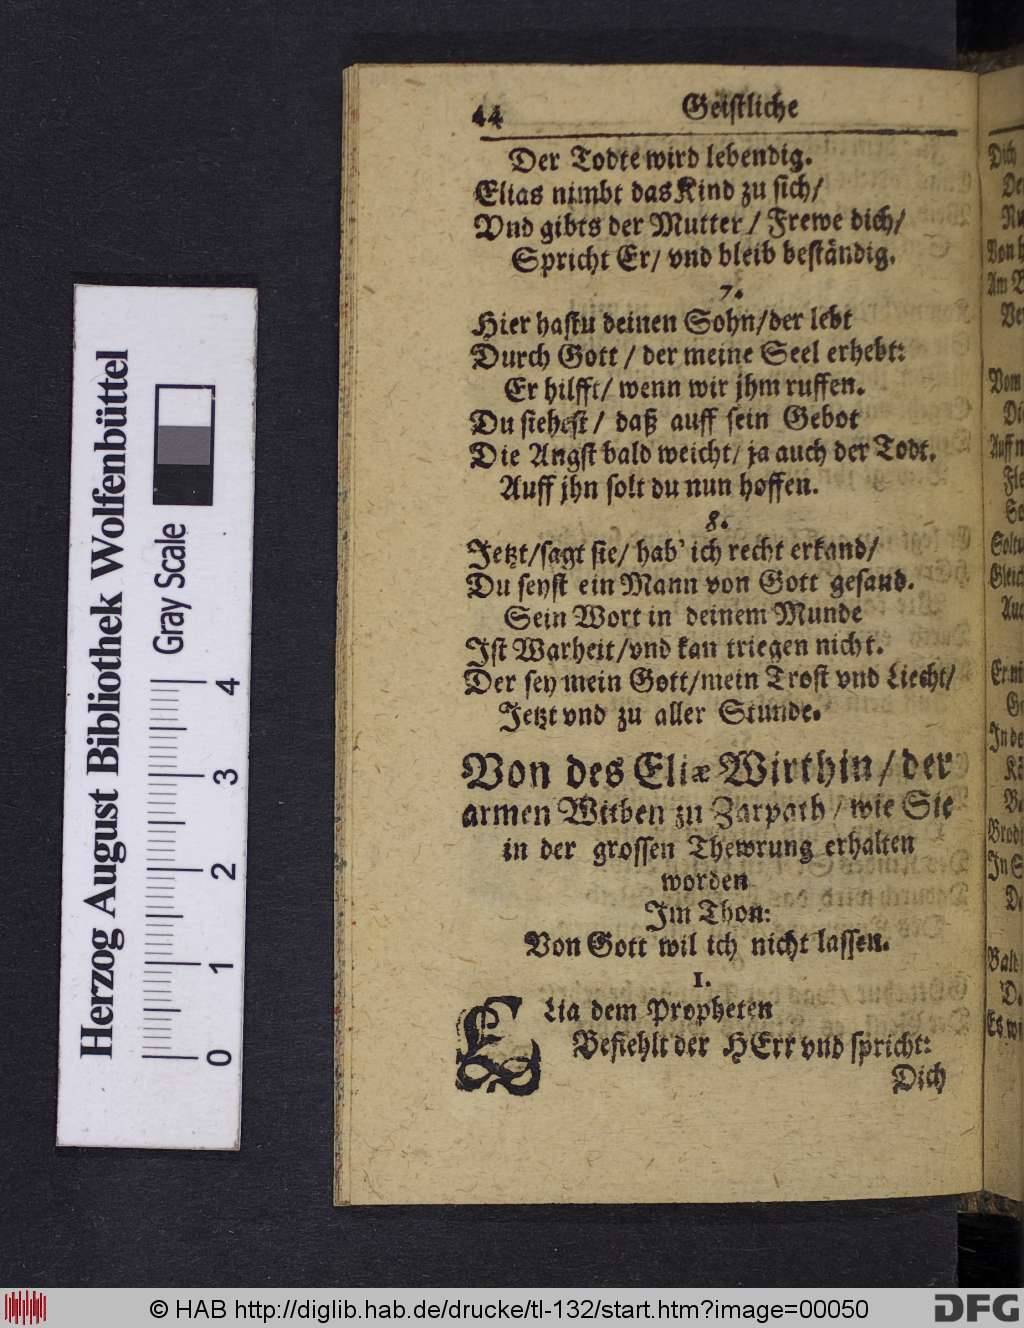 44 Geistliche
Der Todte wird lebendig.
Elias nimbt das Kind zu sich/
Vnd gibts der Mutter / Frewe dich/
Spricht Er/ vnd bleib beständig.
7.
Hier hastu deinen Sohn/der lebt
Durch Gott / der meine Seel erhebt:
Er hilfft/ wenn wir jhm ruffen.
Du siehest / daß auff sein Gebot
Die Angst bald weicht/ ja auch der Todt.
Auff jhn solt du nun hoffen.
8.
Jetzt/sagt sie/ hab' ich recht erkand/
Du seyst ein Mann von Gott gesand.
Sein Wort in deinem Munde
Ist Warheit/vnd kan triegen nicht.
Der sey mein Gott/mein Trost vnd Liecht/
Jetzt vnd zu aller Stunde.
Von des Eliæ Wirthin / der
armen Witben zu Zarpath / wie Sie
in der grossen Thewrung erhalten
worden
Im Thon:
Von Gott wil ich nicht lassen.
1.
ELia dem Propheten
Befiehlt der HErr vnd spricht:
Dich
Dich
Von
Vom
Gleich
Bald
Herzog August Bibliothek Wolfenbüttel
Gray Scale
0 1 2 3 4
© HAB http://diglib.hab.de/drucke/tl-132/start.htm?image=00050
DFG